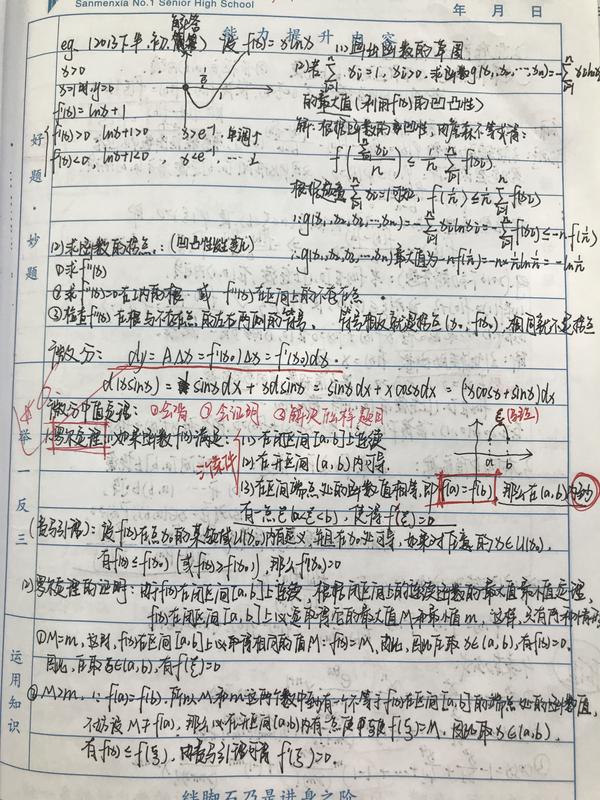 Sanmenxia No.1 Senior High School
年 月 日
能力提升内容
解答
eg.(2013下半,初, ) 设 f(x)=xlnx (1)画出函数的草图
x>0
x=1时,y=0
f'(x)=lnx+1
f'(x)>0, lnx+1>0 x>e⁻¹, 单调↑
f'(x)<0, lnx+1<0, x<e⁻¹, … ↓
(2)若 Σxi=1, xi>0, 求函数g(x1,x2,…,xn)=-Σxilnxi
的最大值(利用f(x)的凹凸性)
解:根据函数的凹性,由詹森不等式得:
f(Σxi/n) ≤ 1/n Σf(xi)
根据 Σxi=1可知, f(1/n)≤1/n Σf(xi)
∴g(x1,x2,x3,…,xn)=-Σxilnxi=-Σf(xi)≤-nf(1/n)
∴g(x1,x2,x3,…,xn)最大值为-nf(1/n)=-nx1/n ln1/n=-ln1/n
好题·妙题
(2)求函数的拐点:(凹凸性 变化)
①求f''(x)
②求f''(x)=0在I内的根 或 f''(x)在区间上的不存在点
③检查f''(x)在根与不存在点的左右两侧的符号, 符号相反就是拐点(x0,f(x0)),相同就不是拐点
微分: dy=AΔx=f'(x0)Δx=f'(x0)dx
d(xsinx)= sinxdx+xdsinx=sinxdx+xcosxdx=(xcosx+sinx)dx
微分中值定理: ①会背 ②会证明 ③解决什么样题目
举一反三
1.罗尔定理:如果函数f(x)满足: (1)在闭区间[a,b]上连续
三个条件
(2)在开区间(a,b)内可导.
a b
(3)在区间端点处的函数值相等,即f(a)=f(b), 那么在(a,b)内至少
有一点ξ(a<ξ<b),使得f'(ξ)=0
(费马引理):设f(x)在点x0的某邻域U(x0)内有定义,并且在x0处可导,如果对任意的x∈U(x0),
有f(x)≤f(x0)(或f(x)≥f(x0)),那么f'(x0)=0
(2)罗尔定理的证明:由于f(x)在闭区间[a,b]上连续,根据闭区间上的连续函数的最大值最小值定理,
f(x)在闭区间[a,b]上必定取得它的最大值M和最小值m,这样,只有两种情况
运用知识
①M=m,这时,f(x)在区间[a,b]上必取得相同的值M:f(x)=M,由此,因此任取x∈(a,b),有f'(x)=0.
因此,任取ξ∈(a,b),有f'(ξ)=0
②M>m,∵f(a)=f(b),所以M和m这两个数中至少有一个不等于f(x)在区间[a,b]的端点处的函数值,
不妨设M≠f(a),那么必在开区间(a,b)内有一点ξ使f(ξ)=M, 因此任取x∈(a,b),
有f(x)≤f(ξ),由费马引理可得f'(ξ)=0.
绊脚石乃是进身之阶